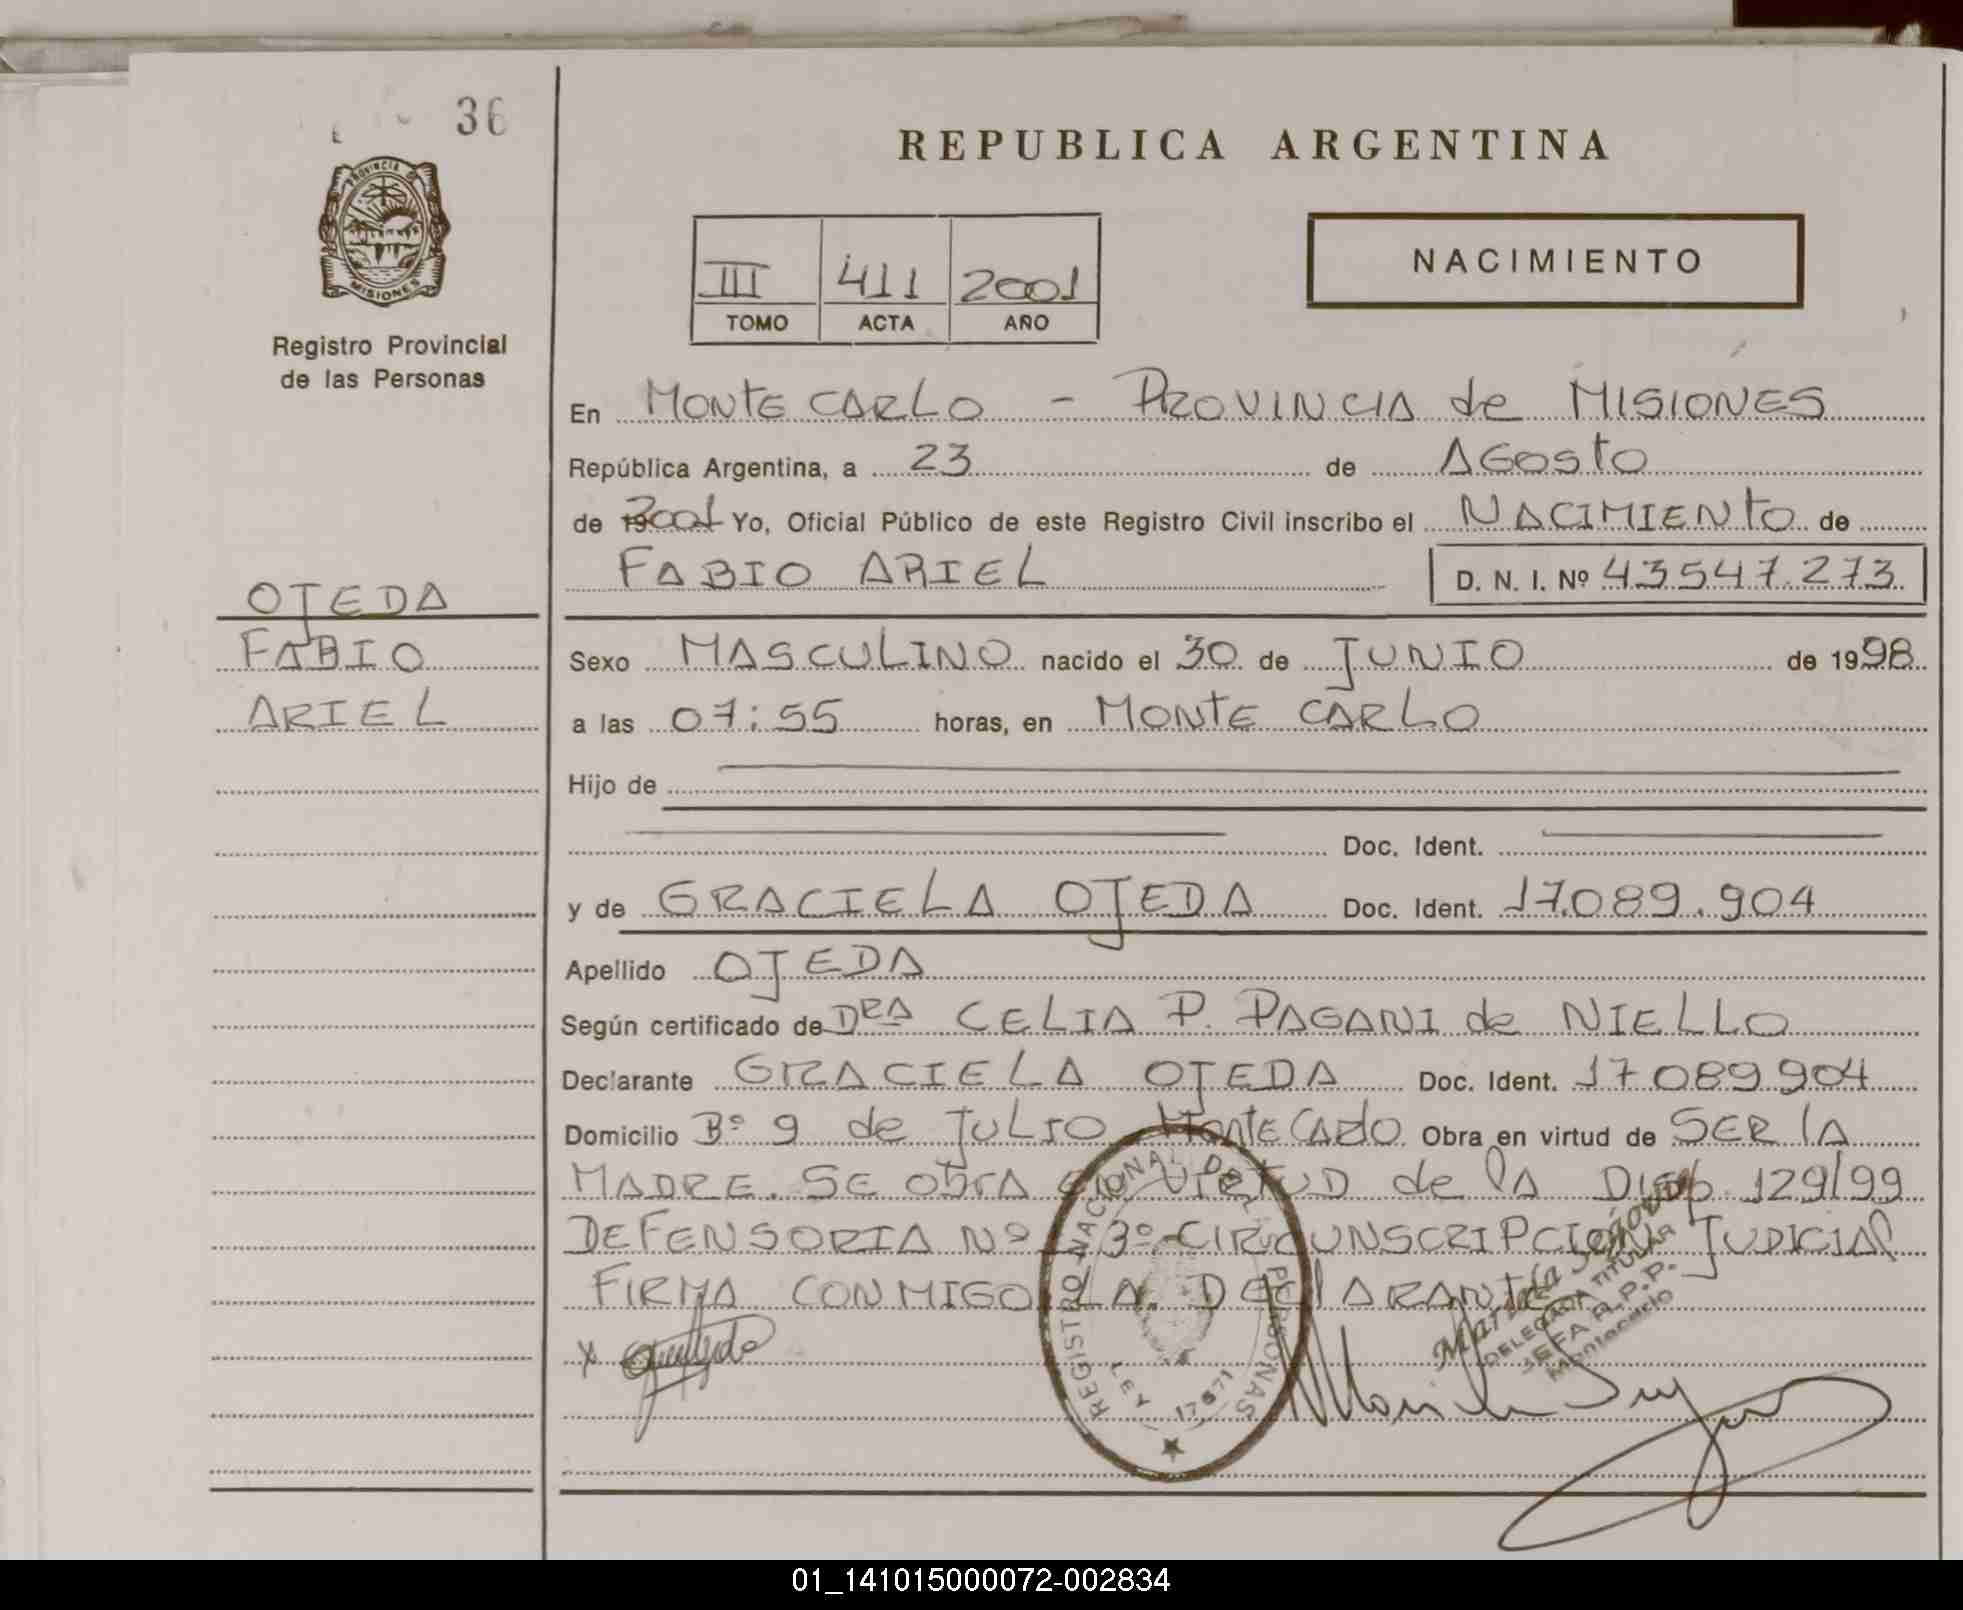 36
PROVINCIA DE
MISIONES
Registro Provincial
de las Personas
REPUBLICA ARGENTINA
III 411 2001
TOMO ACTA AÑO
NACIMIENTO
En MONTE CARLO - PROVINCIA de MISIONES
República Argentina, a 23 de AGOSTO
de 2001 Yo, Oficial Público de este Registro Civil inscribo el NACIMIENTO de
FABIO ARIEL D. N. I. Nº 43547.273
OJEDA
FABIO
ARIEL
Sexo MASCULINO nacido el 30 de JUNIO de 1998
a las 07:55 horas, en MONTE CARLO
Hijo de
Doc. Ident.
y de GRACIELA OJEDA Doc. Ident. 17.089.904
Apellido OJEDA
Según certificado de DRA CELIA P. PAGANI de NIELLO
Declarante GRACIELA OJEDA Doc. Ident. 17089904
Domicilio Bº 9 de JULIO MONTE CARLO Obra en virtud de SER LA
MADRE. SE OBRA EN VIRTUD de la DISP. 129/99
DEFENSORIA Nº 3º CIRCUNSCRIPCION JUDICIAL
FIRMA CONMIGO LA DECLARANTE
X
REGISTRO NACIONAL DE LAS PERSONAS
LEY 17671
DELEGADA TITULAR
JEFA R.P.P.
Montecarlo
01_141015000072-002834